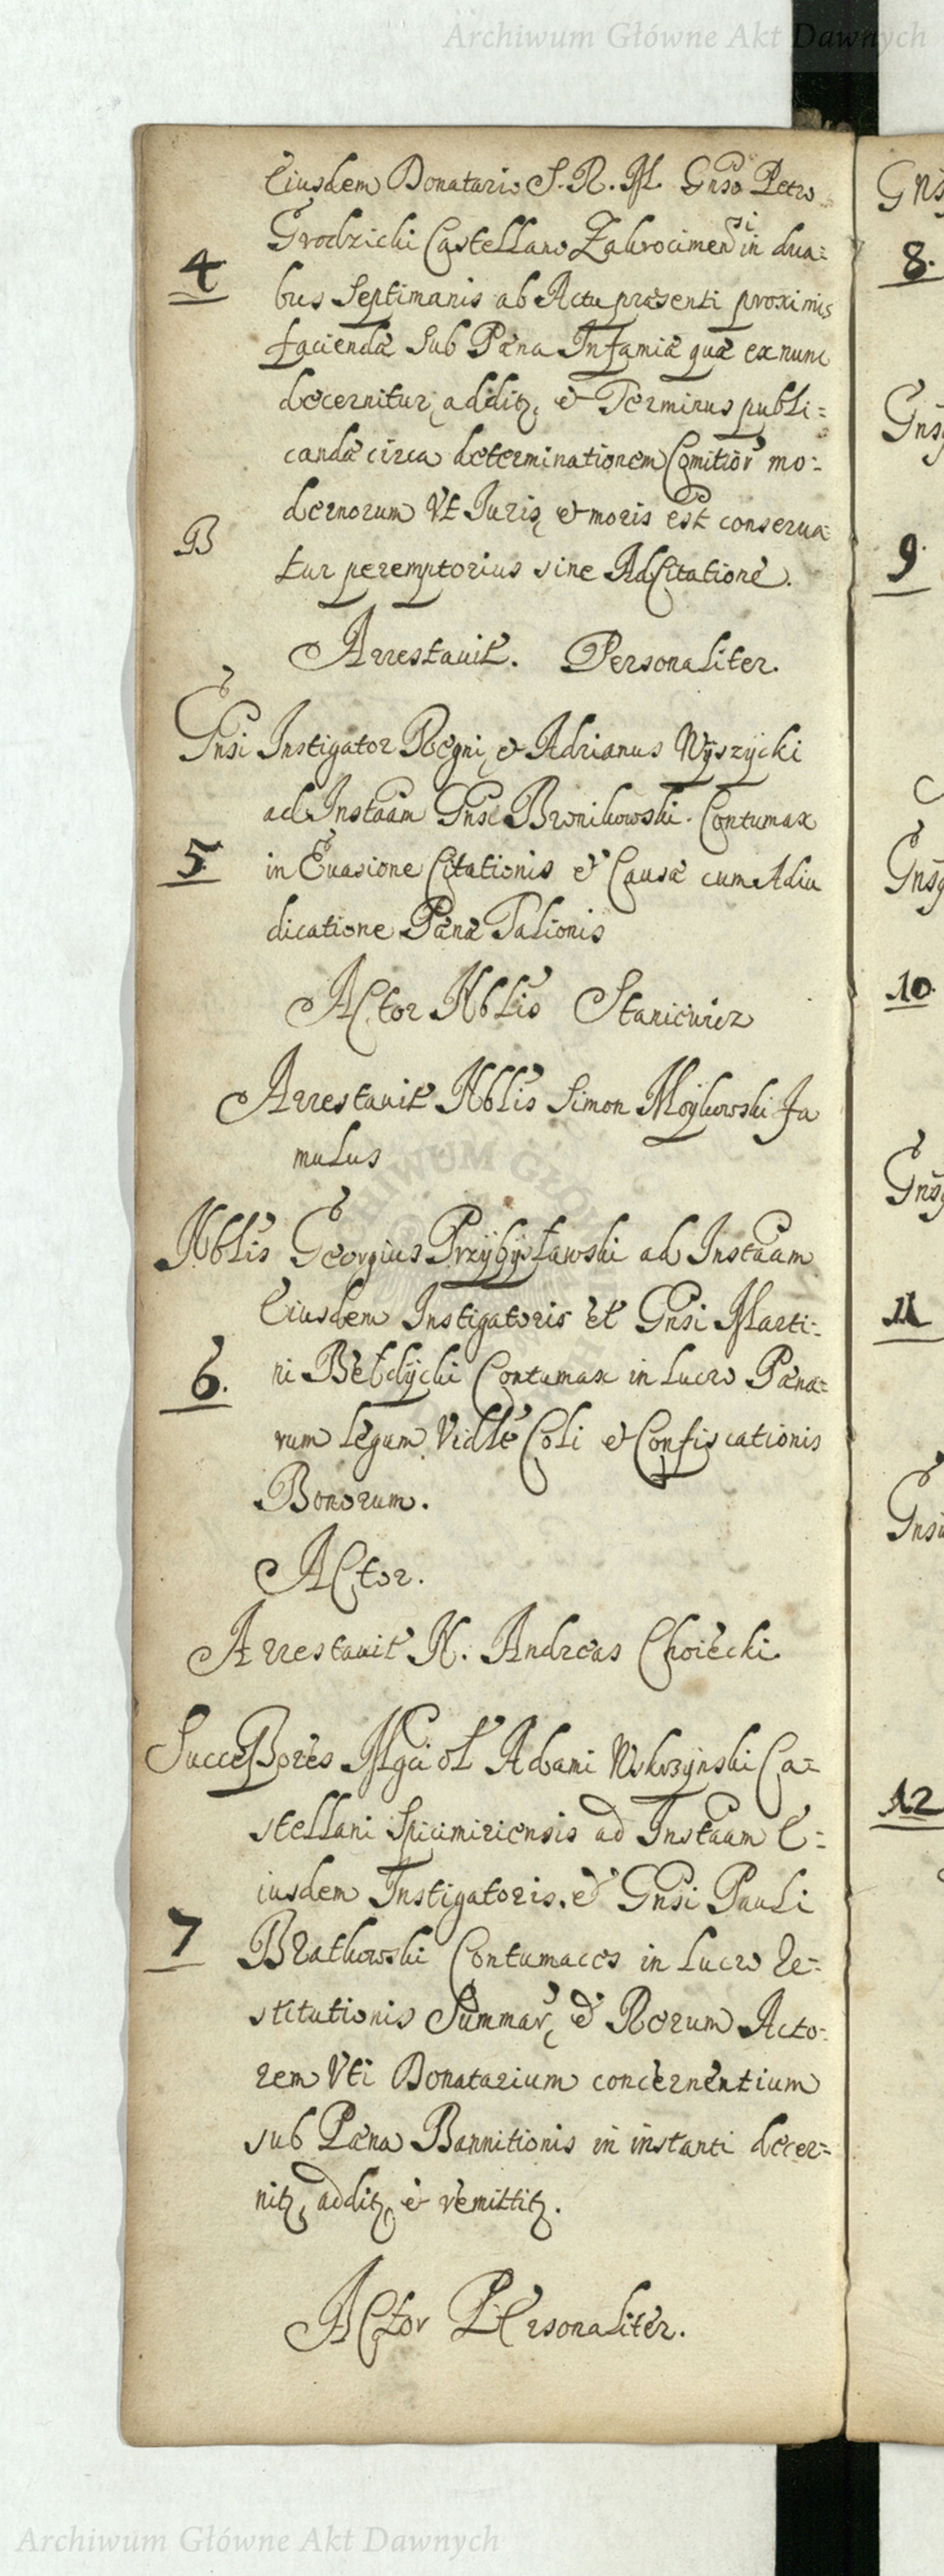 Archiwum Główne Akt Dawnych
Eiusdem Donatario S. R. M. Gnso Petro
Grodzicki Castellano Zakrocimensi in dua=
4
bus Septimanis ab Actu præsenti proximis
facienda sub Pæna Infamiæ quæ ex nunc
decernitur, additq, & Terminus publi=
canda circa determinationem Comitior mo=
dernorum Vt Juris, & moris est conserua=
B
tur peremptorius sine Adcitatione.
Arrestauit. Personaliter.
Gnsi Instigator Regni, & Adrianus Wÿszÿcki
ad Instãam Gnsi Bronikowski. Contumax
5
in Euasione Citationis & Causæ cum Adiu
dicatione Pænæ Talionis
Actor Nblis Staniewicz
Arrestauit Nblis Simon Moÿkowski Fa
mulus
Nblis Georgius Przÿbÿsławski ad Instãam
Eiusdem Instigatoris et Gnsi Marti=
6.
ni Bełdÿcki Contumax in Lucro Pæna=
rum Legum Vidlt Coli & Confiscationis
Bonorum.
Actor.
Arrestauit N. Andreas Choiecki.
Successores Mgci ol Adami Wskrzÿnski Ca=
stellani Spicimiriensis ad Instãam E=
iusdem Instigatoris. & Gnsi Pauli
7
Bratkowski Contumaces in Lucro Re=
stitutionis Summar, & Rerum Acto=
rem Vti Donatarium concernentium
sub Pæna Bannitionis in instanti decer=
nitq, additq, & remittitq.
Actor Personaliter.
8.
9.
10.
11
12
Archiwum Główne Akt Dawnych